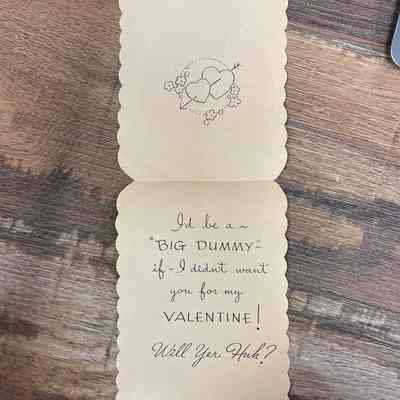 I'd be a ~
"BIG DUMMY"-
if - I didn't want
you for my
VALENTINE!
Will Yer Huh?